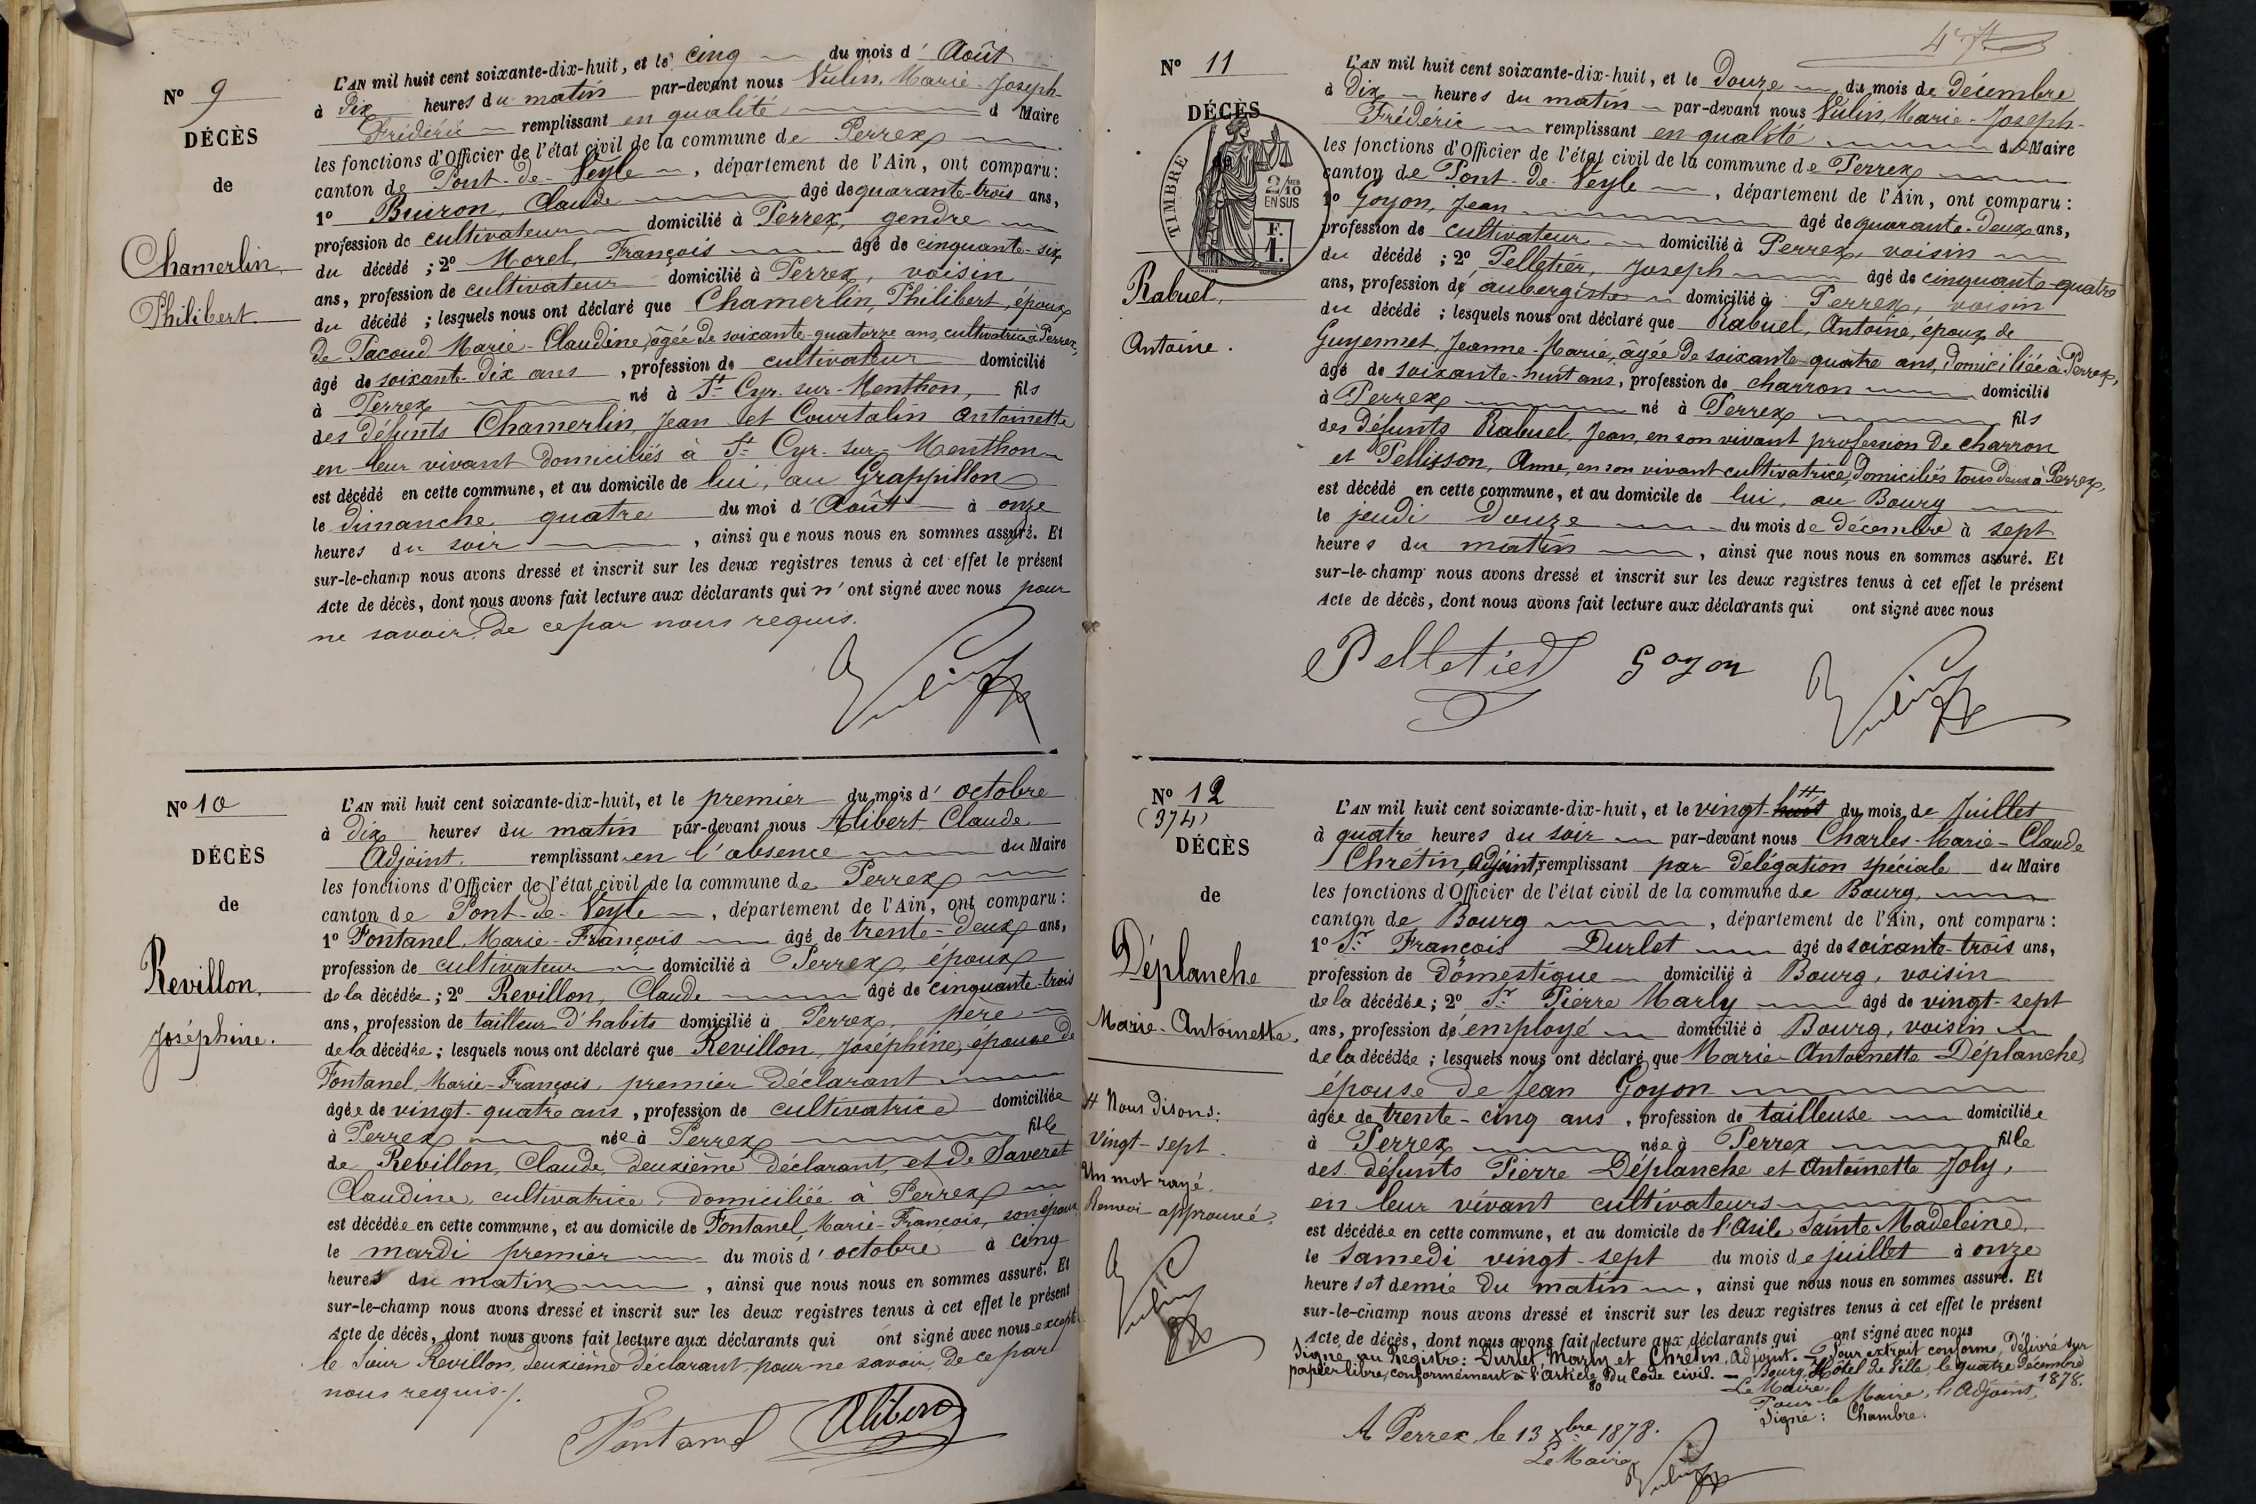 N° 9
DÉCÈS
de
Chamerlin,
Philibert.
L'AN mil huit cent soixante-dix-huit, et le cinq du mois d'Août
à Dix heures du matin par-devant nous Vulin, Marie-Joseph-
Frédéric remplissant en qualité d Maire
les fonctions d'Officier de l'état civil de la commune de Perrex
canton de Pont-de-Veyle, département de l'Ain, ont comparu:
1° Buiron, Claude âgé de quarante-trois ans,
profession de cultivateur domicilié à Perrex, gendre
du décédé ; 2° Morel, François âgé de cinquante-six
ans, profession de cultivateur domicilié à Perrex, voisin
du décédé ; lesquels nous ont déclaré que Chamerlin, Philibert, époux
de Pacoud Marie-Claudine, âgée de soixante-quatorze ans, cultivatrice à Perrex,
âgé de soixante-dix ans, profession de cultivateur domicilié
à Perrex né à St Cyr-sur-Menthon, fils
des défunts Chamerlin, Jean et Courtalin Antoinette
en leur vivant domiciliés à St Cyr-sur-Menthon
est décédé en cette commune, et au domicile de lui, au Grappillon
le dimanche quatre du moi d'Août à onze
heures du soir, ainsi que nous nous en sommes assuré. Et
sur-le-champ nous avons dressé et inscrit sur les deux registres tenus à cet effet le présent
Acte de décès, dont nous avons fait lecture aux déclarants qui n'ont signé avec nous pour
ne savoir de ce par nous requis.
Vulin
N° 10
DÉCÈS
de
Revillon,
Joséphine.
L'AN mil huit cent soixante-dix-huit, et le premier du mois d'octobre
à Dix heures du matin par-devant nous Alibert Claude
Adjoint remplissant en l'absence du Maire
les fonctions d'Officier de l'état civil de la commune de Perrex
canton de Pont-de-Veyle, département de l'Ain, ont comparu:
1° Fontanel, Marie-François âgé de trente-deux ans,
profession de cultivateur domicilié à Perrex, époux
de la décédée ; 2° Revillon, Claude âgé de cinquante-trois
ans, profession de tailleur d'habits domicilié à Perrex, père
de la décédée ; lesquels nous ont déclaré que Revillon, Joséphine, épouse de
Fontanel, Marie-François, premier déclarant
âgée de vingt-quatre ans, profession de cultivatrice domiciliée
à Perrex née à Perrex fille
de Revillon, Claude, deuxième déclarant, et de Saveret
Claudine, cultivatrice, domiciliée à Perrex
est décédée en cette commune, et au domicile de Fontanel, Marie-François, son époux
le mardi premier du mois d'octobre à cinq
heures du matin, ainsi que nous nous en sommes assuré. Et
sur-le-champ nous avons dressé et inscrit sur les deux registres tenus à cet effet le présent
Acte de décès, dont nous avons fait lecture aux déclarants qui ont signé avec nous excepté
le Sieur Revillon, deuxième déclarant pour ne savoir, de ce par
nous requis./.
Fontanel Alibert
N° 11
DÉCÈS
de
TIMBRE
2/10
EN SUS
F.
1.
Rabuel,
Antoine.
L'AN mil huit cent soixante-dix-huit, et le Douze du mois de Décembre
à Dix heures du matin par-devant nous Vulin, Marie-Joseph-
Frédéric remplissant en qualité de Maire
les fonctions d'Officier de l'état civil de la commune de Perrex
canton de Pont-de-Veyle, département de l'Ain, ont comparu :
1° Goyon, Jean âgé de quarante-deux ans,
profession de cultivateur domicilié à Perrex, voisin
du décédé ; 2° Pelletier, Joseph âgé de cinquante-quatre
ans, profession d'aubergiste domicilié à Perrex, voisin
du décédé ; lesquels nous ont déclaré que Rabuel, Antoine, époux de
Guyennet, Jeanne-Marie, âgée de soixante-quatre ans, domiciliée à Perrex,
âgé de soixante-huit ans, profession de charron domicilié
à Perrex né à Perrex fils
des défunts Rabuel, Jean, en son vivant profession de charron
et Pellisson, Anne, en son vivant cultivatrice, domiciliés tous deux à Perrex,
est décédé en cette commune, et au domicile de lui, au Bourg
le jeudi Douze du mois de décembre à sept
heures du matin, ainsi que nous nous en sommes assuré. Et
sur-le-champ nous avons dressé et inscrit sur les deux registres tenus à cet effet le présent
Acte de décès, dont nous avons fait lecture aux déclarants qui ont signé avec nous
Pelletier Goyon Vulin
N° 12
(374)
DÉCÈS
de
Déplanche
Marie-Antoinette.
# Nous disons:
Vingt-sept.
Un mot rayé.
Renvoi approuvé.
Vulin
L'AN mil huit cent soixante-dix-huit, et le vingt-huit # du mois de Juillet
à quatre heures du soir par-devant nous Charles-Marie-Claude
Chrétin, Adjoint, remplissant par délégation spéciale du Maire
les fonctions d'Officier de l'état civil de la commune de Bourg,
canton de Bourg, département de l'Ain, ont comparu :
1° Sr François Durlet âgé de soixante-trois ans,
profession de domestique domicilié à Bourg, voisin
de la décédée ; 2° Sr Pierre Marly âgé de vingt-sept
ans, profession d'employé domicilié à Bourg, voisin
de la décédée ; lesquels nous ont déclaré que Marie-Antoinette Déplanche,
épouse de Jean Goyon
âgée de trente-cinq ans, profession de tailleuse domiciliée
à Perrex née à Perrex fille
des défunts Pierre Déplanche et Antoinette Joly,
en leur vivant cultivateurs
est décédée en cette commune, et au domicile de l'Asile Sainte Madeleine,
le Samedi vingt-sept du mois de juillet à onze
heures et demie du matin, ainsi que nous nous en sommes assuré. Et
sur-le-champ nous avons dressé et inscrit sur les deux registres tenus à cet effet le présent
Acte de décès, dont nous avons fait lecture aux déclarants qui ont signé avec nous
Signé au Registre: Durlet, Marly et Chrétin, Adjoint. — Pour extrait conforme, Délivré sur
papier libre, conformément à l'Article 80 du Code civil. — Bourg, Hôtel de Ville, le quatre Décembre
1878.
Le Maire,
Pour le Maire, l'Adjoint,
Signé: Chambre.
A Perrex, le 13 xbre 1878.
Le Maire
Vulin